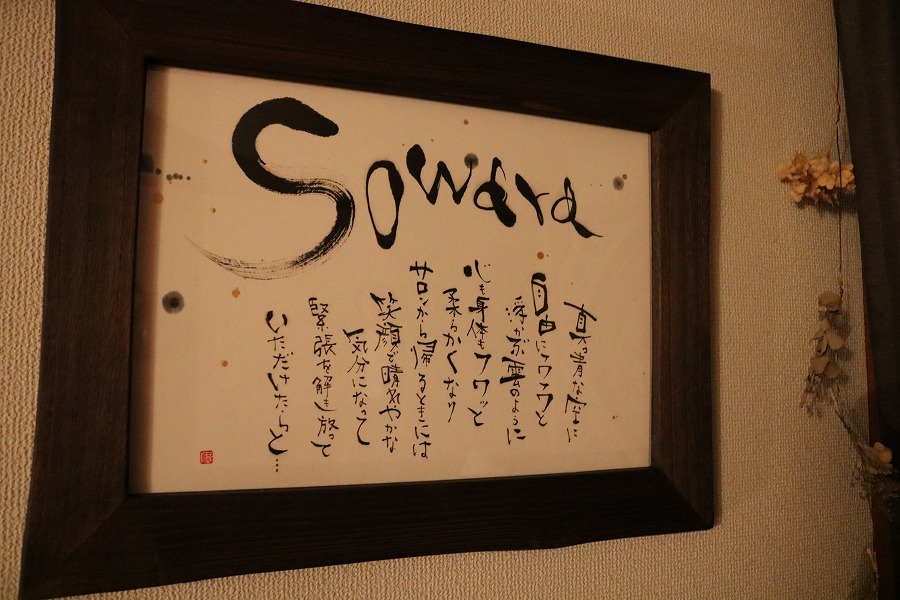 Sowara
真っ青な空に
自由にフワフワと
浮かぶ雲のように
心も身体もフワッと
柔らかくなり
サロンから帰るときには
笑顔で晴れやかな
気分になって
緊張を解き放って
いただけたらと…